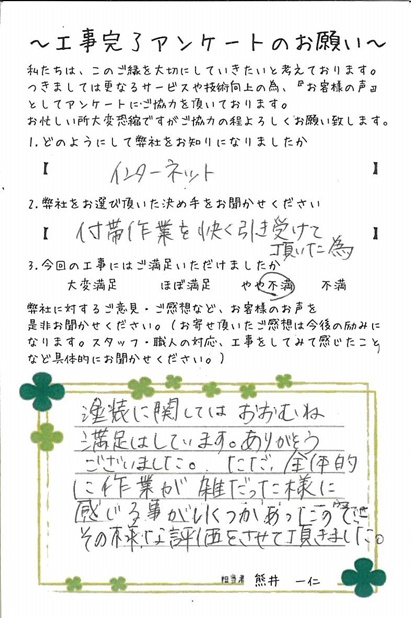 ～工事完了アンケートのお願い～
私たちは、このご縁を大切にしていきたいと考えております。
つきましては更なるサービスや技術向上の為、『お客様の声』
としてアンケートにご協力を頂いております。
お忙しい所大変恐縮ですがご協力の程よろしくお願い致します。
1.どのようにして弊社をお知りになりましたか
【 インターネット 】
2.弊社をお選び頂いた決め手をお聞かせください
【 付帯作業を快く引き受けて
頂いた為 】
3.今回の工事にはご満足いただけましたか
大変満足 ほぼ満足 やや不満 不満
弊社に対するご意見・ご感想など、お客様のお声を
是非お聞かせください。(お寄せ頂いたご感想は今後の励みに
なります。スタッフ・職人の対応、工事をしてみて感じたこと
など具体的にお聞かせください。)
塗装に関しては おおむね
満足はしています。ありがとう
ございました。ただ、全体的
に作業が雑だった様に
感じる事がいくつかあった
その様な評価をさせて頂きました。
担当者 熊井 一仁